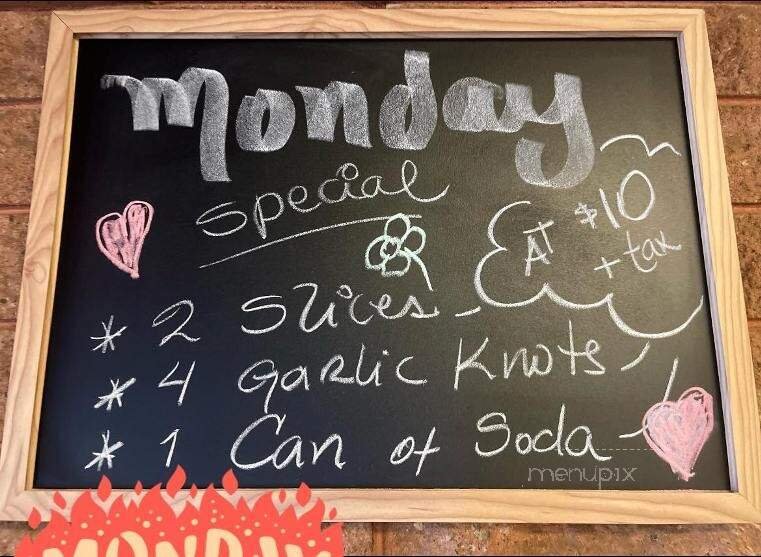 Monday
Special
AT $10
+ tax
* 2 Slices
* 4 Garlic Knots
* 1 Can of Soda
menupix
MONDAY